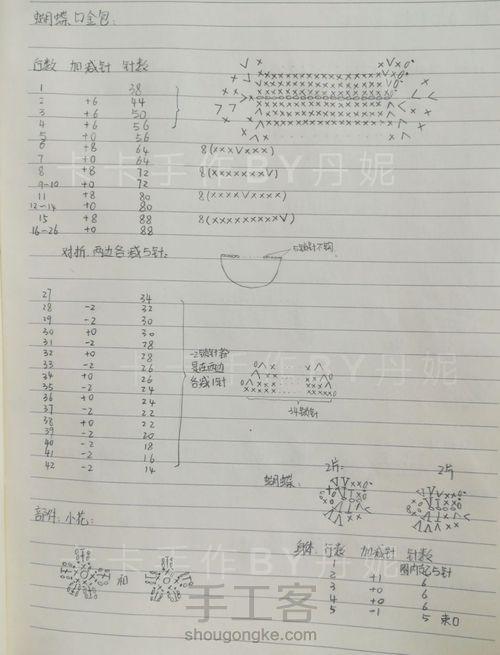 蝴蝶口金包:
行数 加减针 针数
1 38
2 +6 44
3 +6 50
4 +6 56
5 +0 56
6 +8 64 8(xxxVxxx)
7 +0 64
8 +8 72 8(xxxxxxxV)
9-10 +0 72
11 +8 80 8(xxxxVxxxx)
12-14 +0 80
15 +8 88 8(xxxxxxxxxV)
16-26 +0 88
卡卡手作BY丹妮
对折.两边各减5针:
27 34
28 -2 32
29 -2 30
30 +0 30
31 -2 28
32 +0 28
33 -2 26
34 +0 26
35 -2 24
36 +0 24
37 -2 22
38 +0 22
39 -2 20
40 -2 18
41 -2 16
42 -2 14
是在两边
各减1针
卡卡手作BY丹妮
蝴蝶: 2片: 2片
部件:小花:
和
行数 加减针 针数
1 圈内起5针
2 +1 6
3 +0 6
4 +0 6
5 -1 5 束口
卡卡手作BY丹妮
手工客
shougongke.com